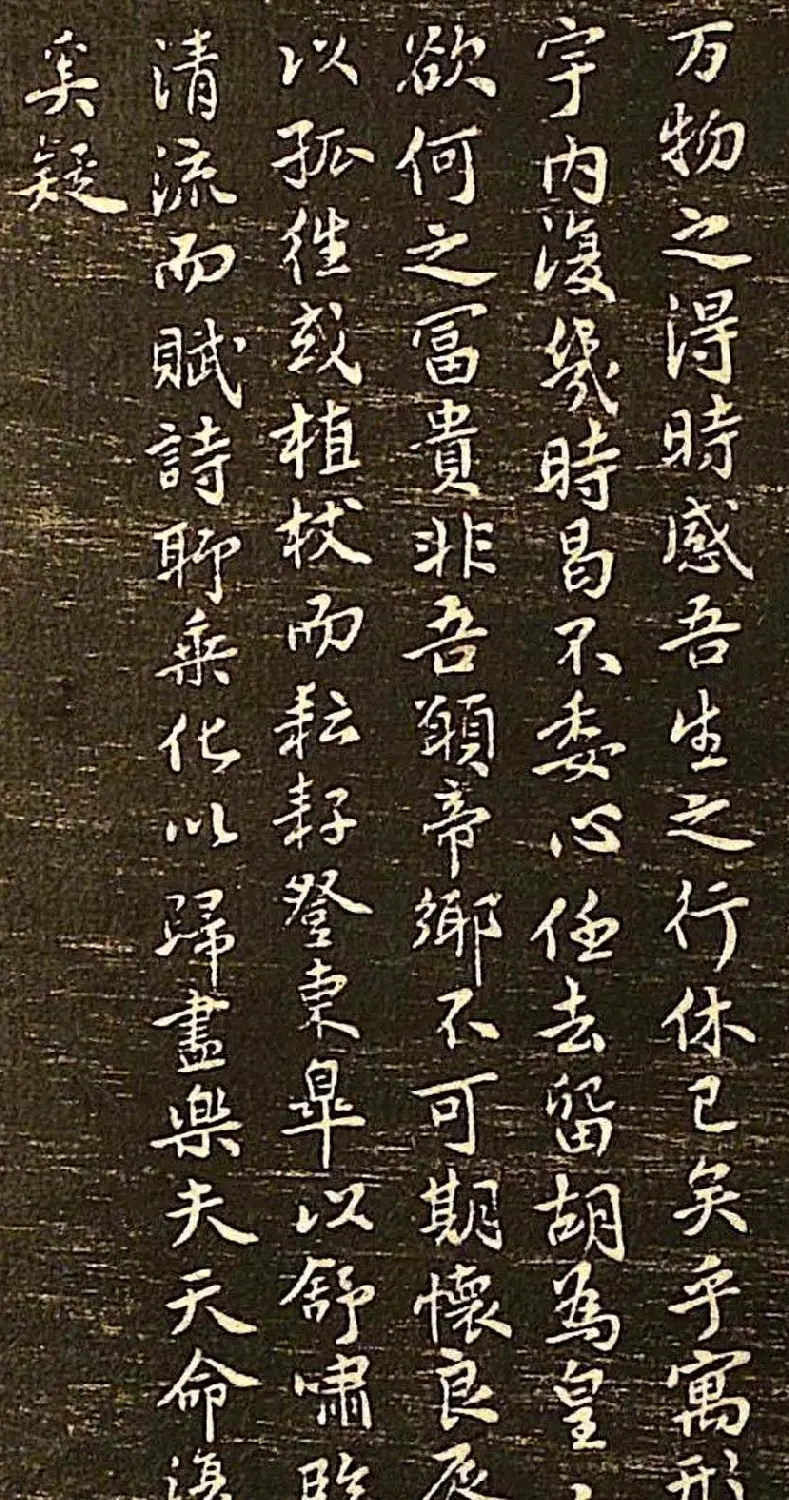 万物之得時感吾生之行休已矣乎寓形
宇内復幾時曷不委心任去留胡為皇
欲何之冨貴非吾願帝鄉不可期懷良辰
以孤徃或植杖而耘耔登東皐以舒嘯臨
清流而賦詩聊乘化以歸盡樂夫天命復
奚疑